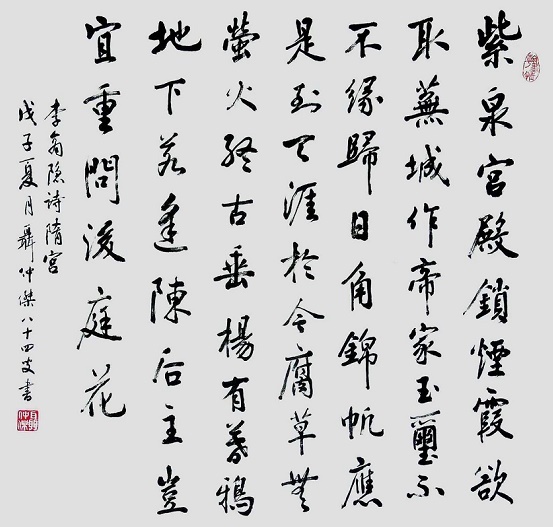 紫泉宮殿鎖煙霞欲
取蕪城作帝家玉璽不
不緣歸日角錦帆應
是到天涯於今腐草無
螢火終古垂楊有暮鴉
地下若逢陳后主豈
宜重問後庭花
李商隱詩隋宮
戊子夏月聶仲傑八十四叟書